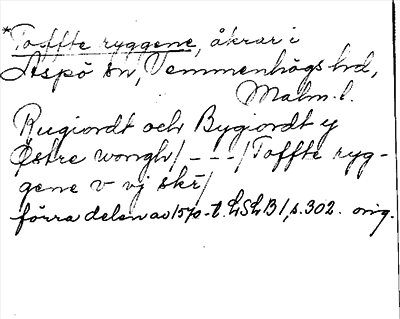 *Toffte ryggene, åkrar i
Aspö sn, Vemmenhögs hd,
Malm. l.
Rugiordt och Bygiordt y
Østre wongh/ - - - / Toffte ryg-
gene v vj skr/
förra delen av 1570-t. LSLB 1, s. 302. orig.